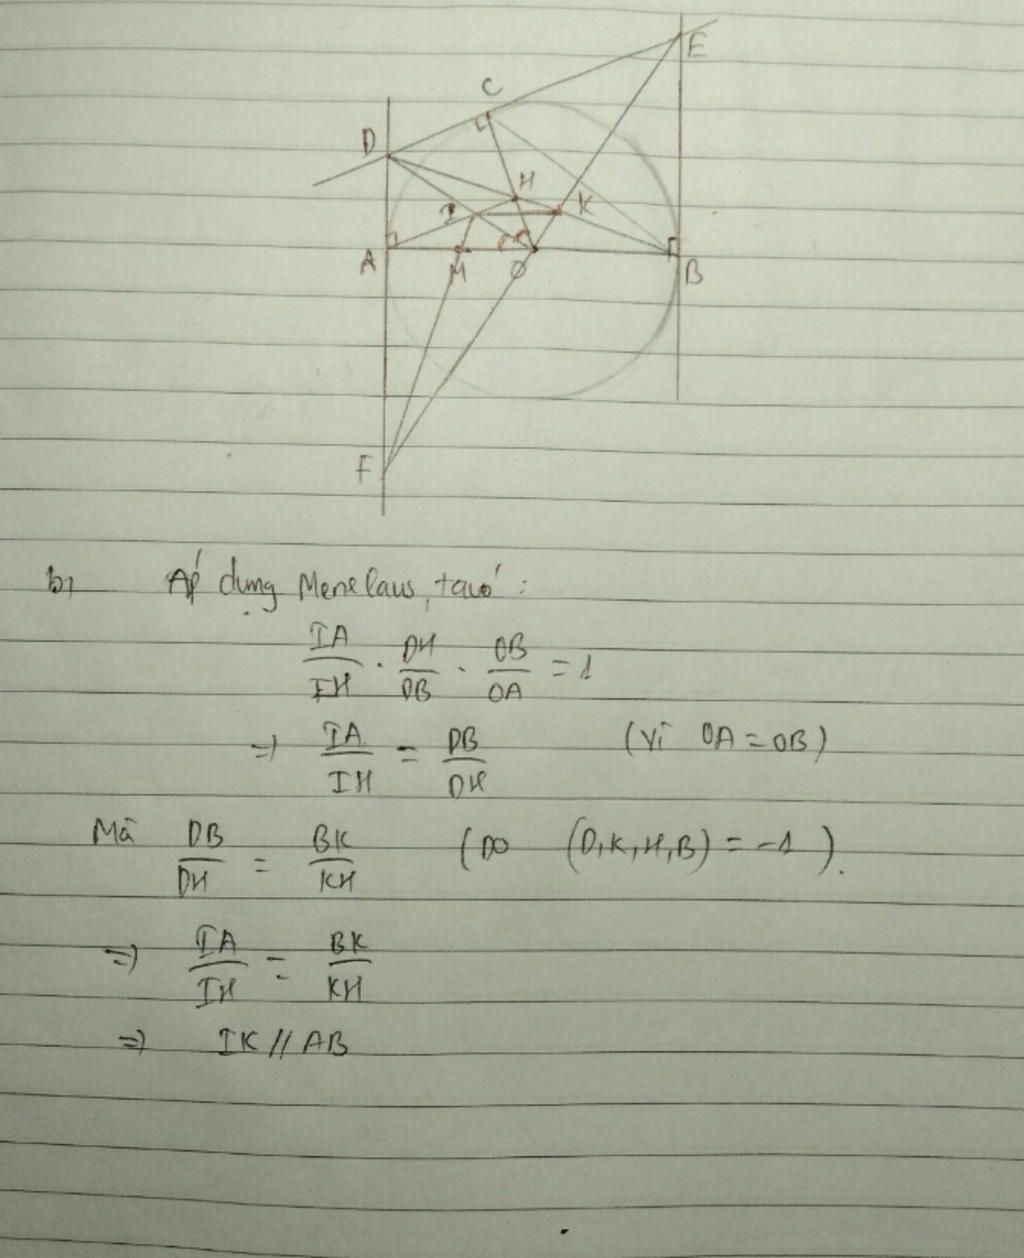 E
C
D
H
I
K
A
M
O
B
F
b,
Áp dụng Menelaus, ta có :
IA/IH . DH/DB . OB/OA = 1
=> IA/IH = DB/DH (vì OA = OB)
Mà DB/DH = BK/KH (Do (D,K,H,B) = -1).
=> IA/IH = BK/KH
=> IK // AB